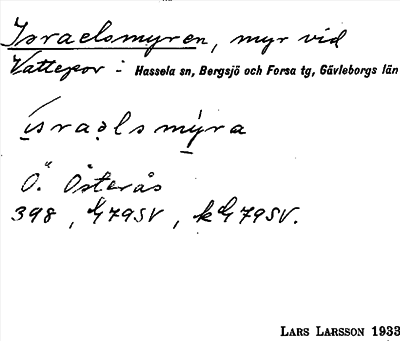 Israelsmyren, myr vid
Vattepor - Hassela sn, Bergsjö och Forsa tg, Gävleborgs län
israəlsmýra
Ö. Österås
398, 479SV, k 479SV.
LARS LARSSON 1933